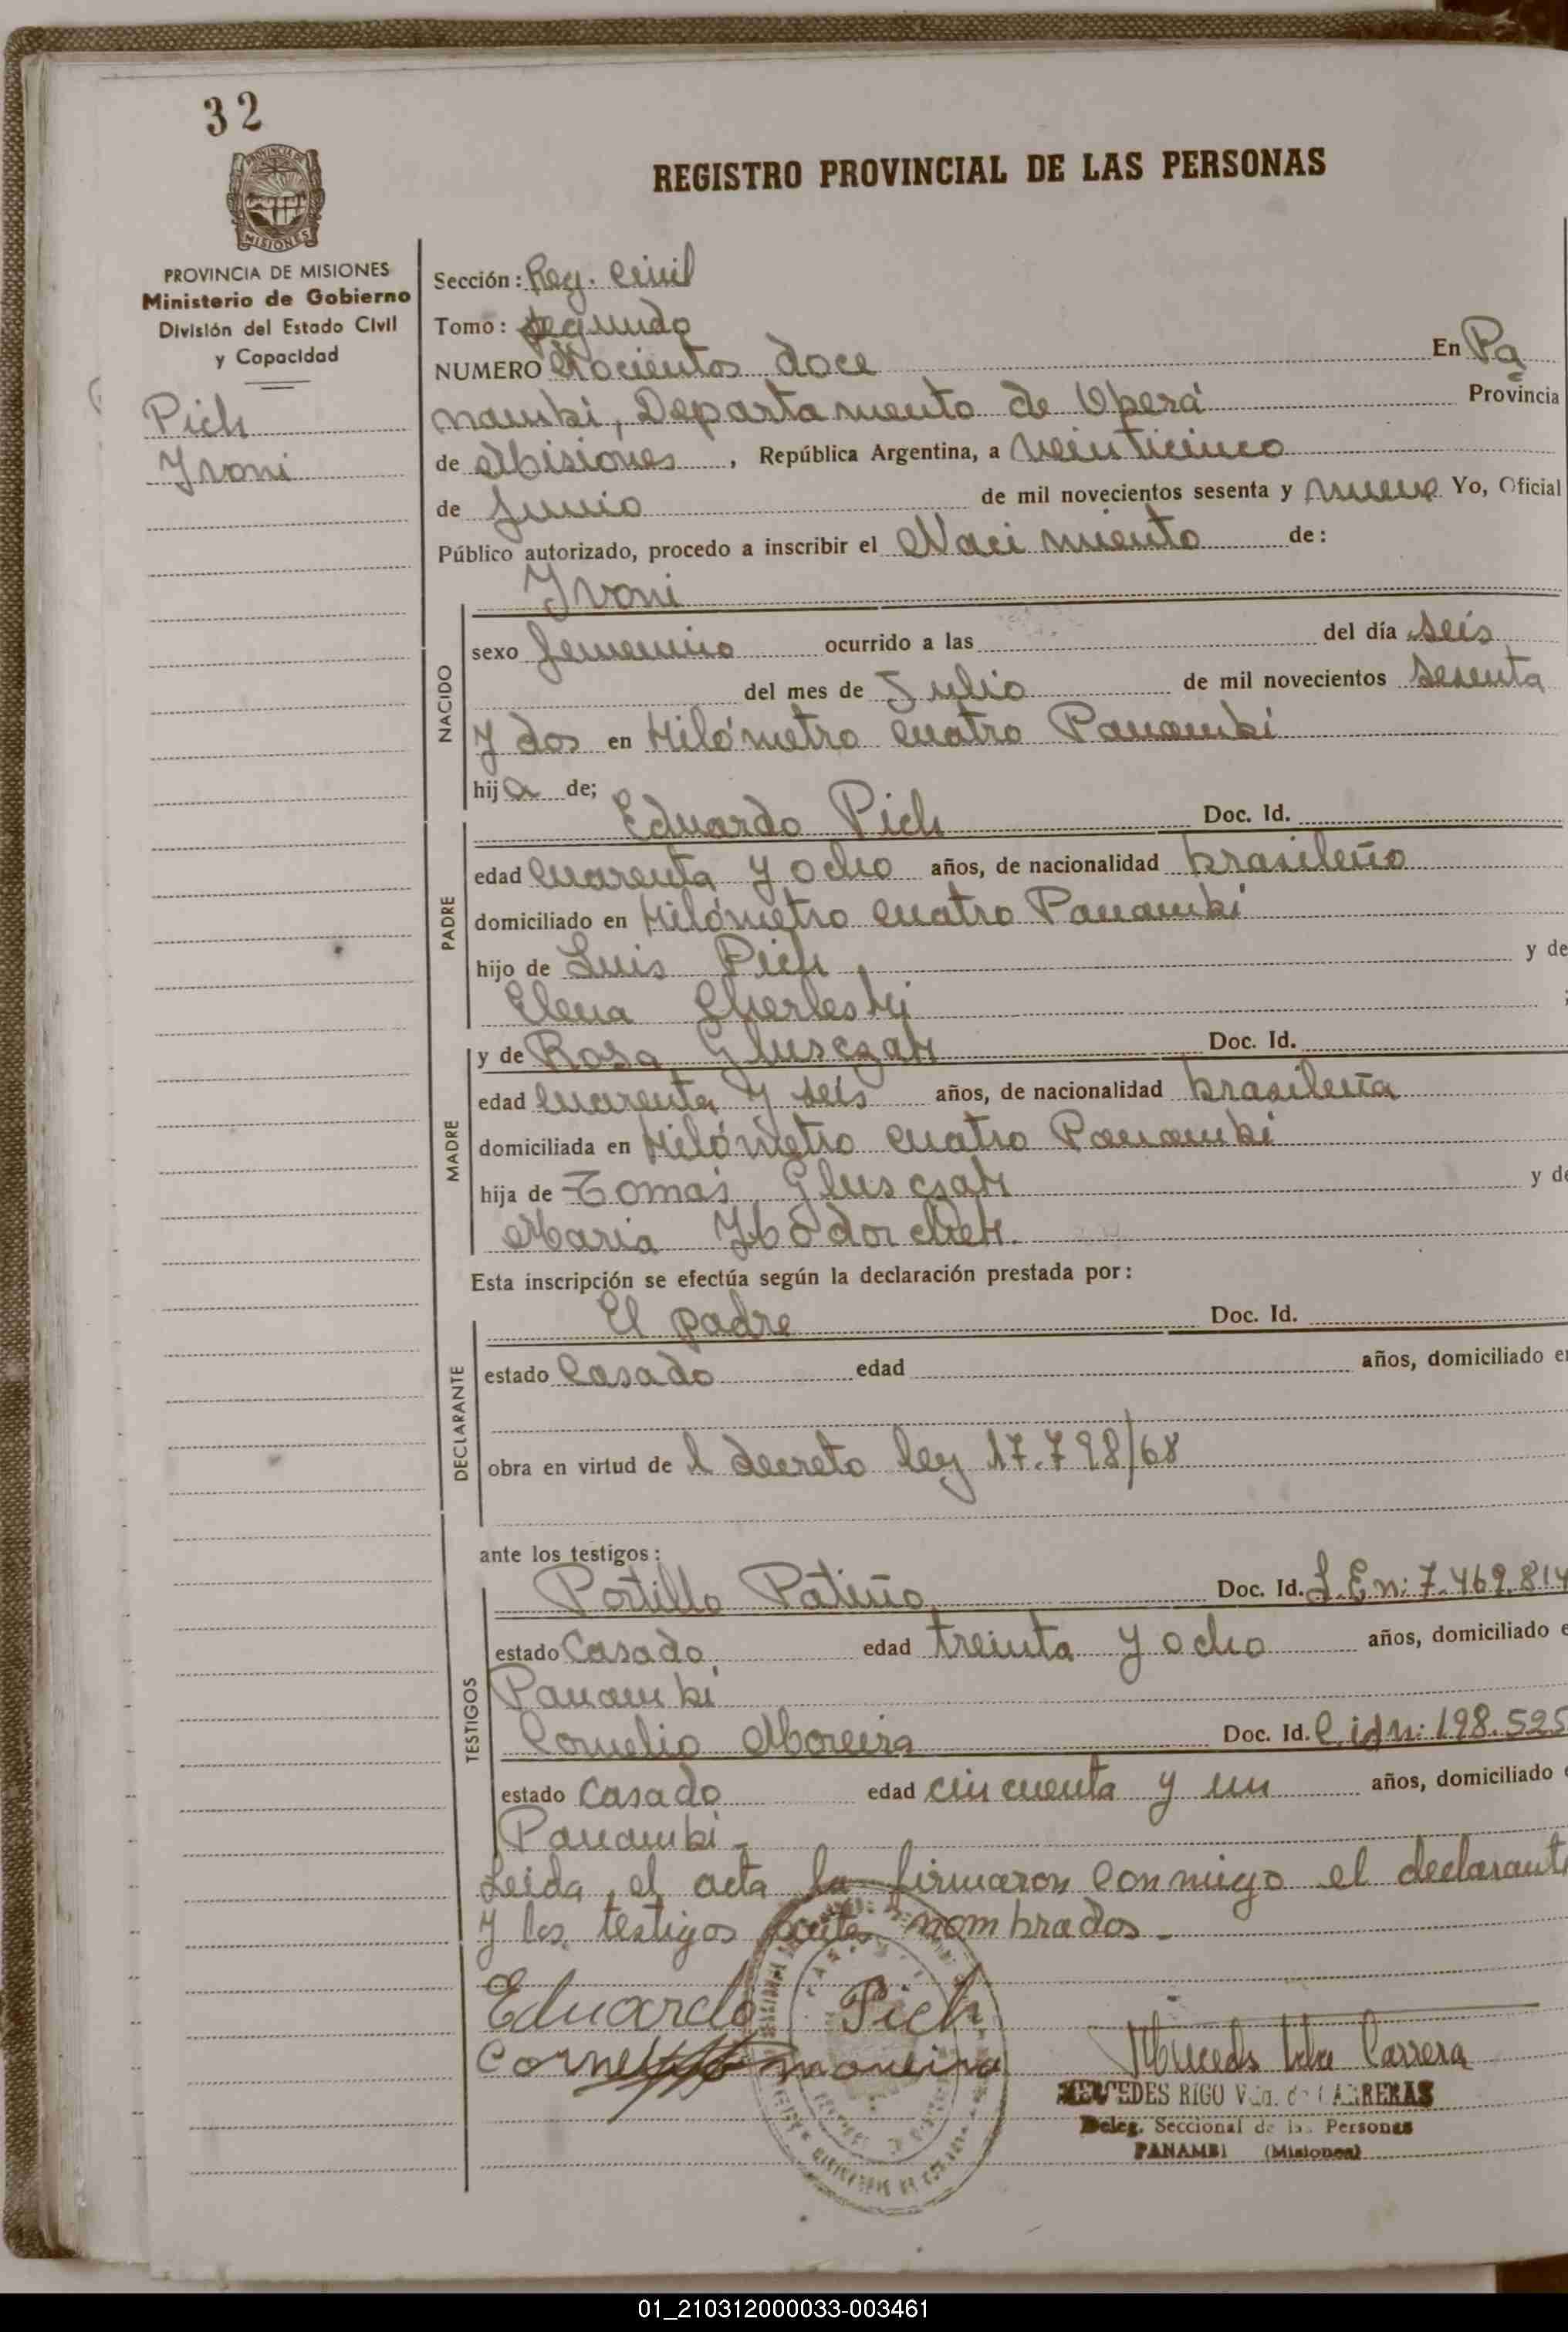 32
REGISTRO PROVINCIAL DE LAS PERSONAS
PROVINCIA DE MISIONES
Ministerio de Gobierno
División del Estado Civil
y Capacidad
Pich
Yvoni
Sección: Reg. Civil
Tomo: segundo
NUMERO doce En Pa
nambí, Departamento de Oberá Provincia
de Misiones, República Argentina, a veinticinco
de Junio de mil novecientos sesenta y nueve Yo, Oficial
Público autorizado, procedo a inscribir el Nacimiento de:
Yvoni
NACIDO
sexo femenino ocurrido a las del día seis
del mes de Julio de mil novecientos sesenta
y dos en Kilómetro cuatro Panambí
hija de;
Eduardo Pich Doc. Id.
PADRE
edad cuarenta y ocho años, de nacionalidad brasileño
domiciliado en Kilómetro cuatro Panambí
hijo de Luis Pich, y de
Elena
y de Rosa Glusczak Doc. Id.
MADRE
edad cuarenta y seis años, de nacionalidad brasileña
domiciliada en Kilómetro cuatro Panambí
hija de Tomás Glusczak y de
Maria
Esta inscripción se efectúa según la declaración prestada por:
El padre Doc. Id.
DECLARANTE
estado Casado edad años, domiciliado en
obra en virtud de l decreto ley 17.798/68
ante los testigos:
Portillo Patiño Doc. Id. L.E n: 7.469.814
TESTIGOS
estado Casado edad treinta y ocho años, domiciliado e
Panambí
Cornelio Moreira Doc. Id. C.idn: 198.525
estado Casado edad cincuenta y un años, domiciliado e
Panambí -
Leida, el acta la firmaron conmigo el declarante
y los testigos ante nombrados -
Eduardo Pich
Cornelio moreira
MERCEDES RIGO Vda. de CARRERAS
Deleg. Seccional de las Personas
PANAMBI (Misiones)
01_210312000033-003461